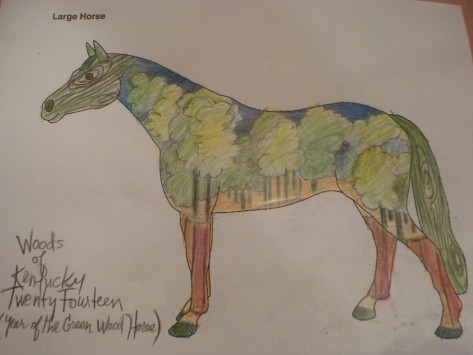 Large Horse
Woods
of
Kentucky
Twenty Fourteen
(Year of the Green Wood Horse)